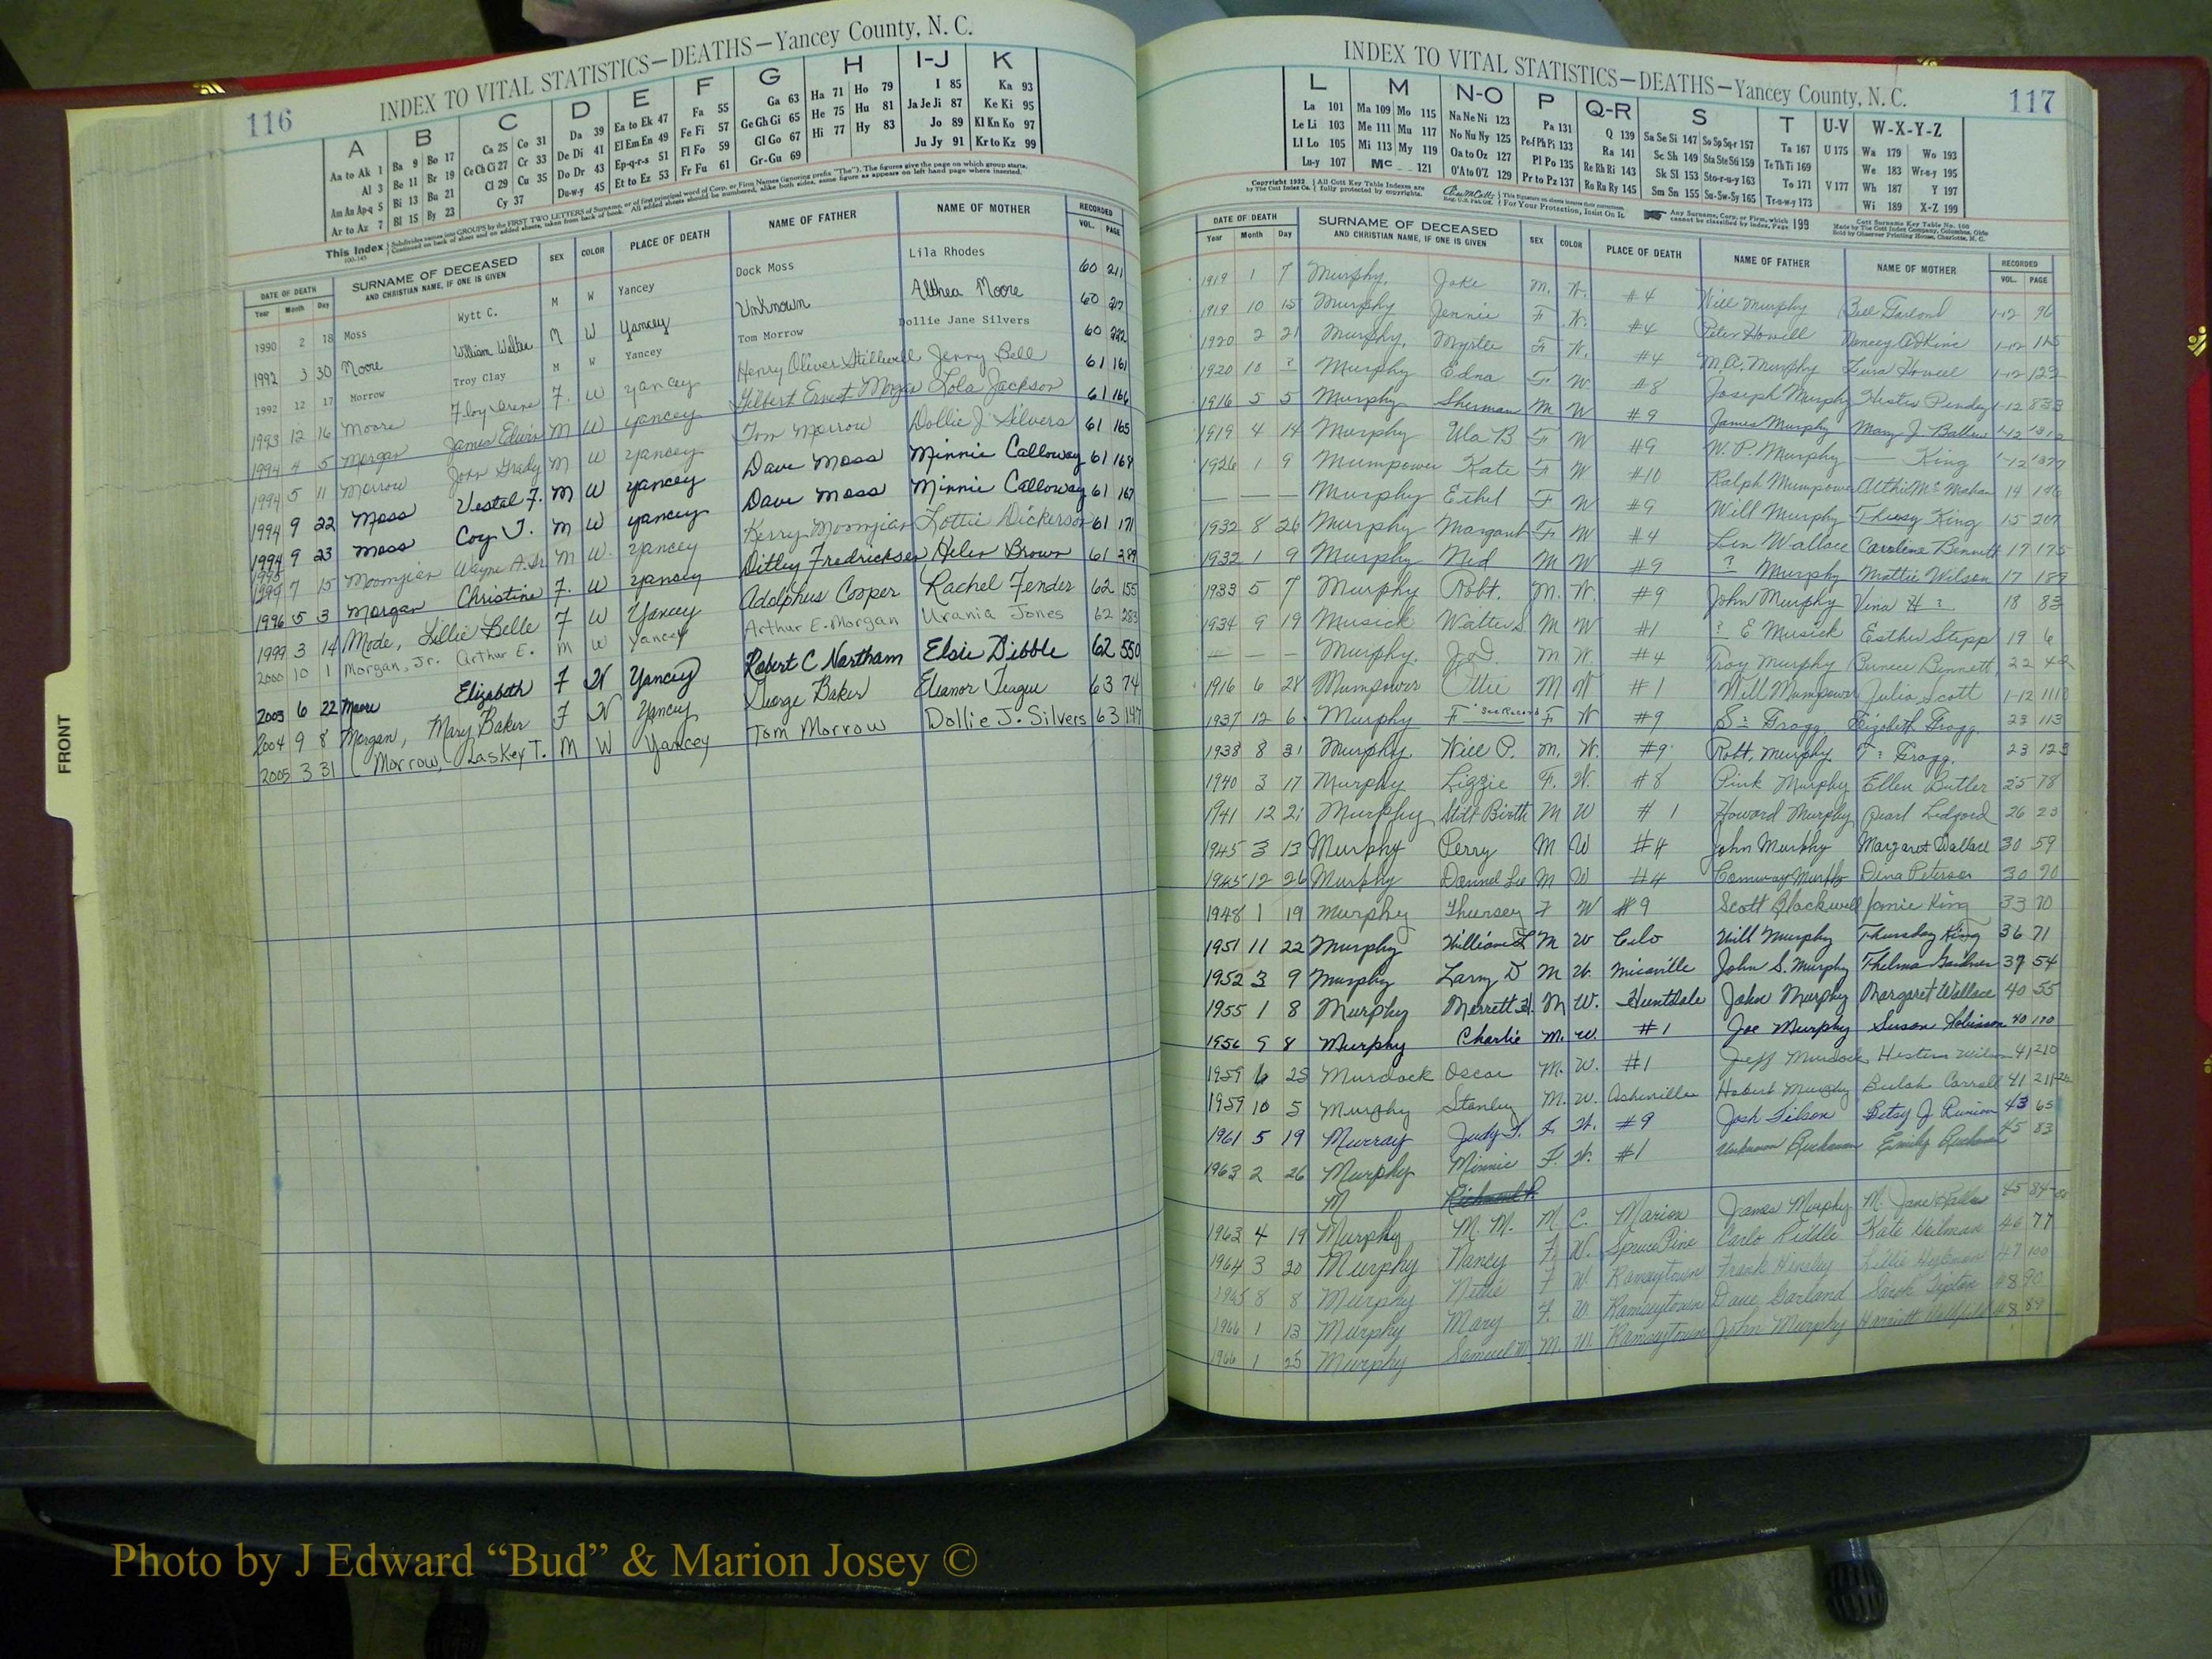 116
INDEX TO VITAL STATISTICS—DEATHS—Yancey County, N. C.
A B C D E F G H I-J K
Aa to Ak 1 Ba 9 Bo 17 Ca 25 Co 31 Da 39 Ea to Ek 47 Fa 55 Ga 63 Ha 71 Ho 79 I 85 Ka 93
Al 3 Be 11 Br 19 Ce Ch Ci 27 Cr 33 De Di 41 El Em En 49 Fe Fi 57 Ge Gh Gi 65 He 75 Hu 81 Ja Je Ji 87 Ke Ki 95
Am An Ap-q 5 Bi 13 Bu 21 Cl 29 Cu 35 Do Dr 43 Ep-q-r-s 51 Fl Fo 59 Gl Go 67 Hi 77 Hy 83 Jo 89 Kl Kn Ko 97
Ar to Az 7 Bl 15 By 23 Cy 37 Du-w-y 45 Et to Ez 53 Fr Fu 61 Gr-Gu 69 Ju Jy 91 Kr to Kz 99
This Index
DATE OF DEATH SURNAME OF DECEASED SEX COLOR PLACE OF DEATH NAME OF FATHER NAME OF MOTHER RECORDED
Year Month Day AND CHRISTIAN NAME, IF ONE IS GIVEN VOL. PAGE
1990 2 18 Moss Wytt C. M W Yancey Dock Moss Lila Rhodes 60 211
1992 3 30 Moore William Walter M W Yancey Unknown Althea Moore 60 217
1992 12 17 Morrow Troy Clay M W Yancey Tom Morrow Dollie Jane Silvers 60 222
1993 12 16 Moore Floy Irene F. W Yancey Henry Oliver Stillwell Jenny Bell 61 161
1994 4 5 Morgan James Edwin M W Yancey Gilbert Ernest Morgan Lola Jackson 61 166
1994 5 11 Morrow John Grady M W Yancey Tom Morrow Dollie J. Silvers 61 165
1994 9 22 Moss Vestal F. M W Yancey Dave Moss Minnie Calloway 61 168
1994 9 23 Moss Coy J. M W Yancey Dave Moss Minnie Calloway 61 167
7 15 Moomjian Wayne A. Sr. M W. Yancey Kerry Moomjian Lottie Dickerson 61 171
1996 5 3 Morgan Christine F. W Yancey Ditley Fredricksen Helen Brown 61 289
1999 3 14 Mode, Lillie Belle F W Yancey Adolphus Cooper Rachel Fender 62 155
2000 10 1 Morgan, Jr. Arthur E. M W Yancey Arthur E. Morgan Urania Jones 62 283
2003 6 22 Moore Elizabeth F W Yancey Robert C Northam Elsie Dibble 62 550
2004 9 8 Morgan, Mary Baker F W Yancey George Baker Eleanor Teague 63 74
2005 3 31 Morrow, Laskey T. M W Yancey Tom Morrow Dollie J. Silvers 63 147
FRONT
117
INDEX TO VITAL STATISTICS—DEATHS—Yancey County, N. C.
L M N-O P Q-R S T U-V W-X-Y-Z
La 101 Ma 109 Mo 115 Na Ne Ni 123 Pa 131 Q 139 Sa Se Si 147 So Sp Sq-r 157 Ta 167 U 175 Wa 179 Wo 193
Le Li 103 Me 111 Mu 117 No Nu Ny 125 Pe-f Ph Pi 133 Ra 141 Sc Sh 149 Sta Ste Sti 159 Te Th Ti 169 We 183 Wr-u-y 195
Ll Lo 105 Mi 113 My 119 Oa to Oz 127 Pl Po 135 Re Rh Ri 143 Sk Sl 153 Sto-r-u-y 163 To 171 V 177 Wh 187 Y 197
Lu-y 107 Mc 121 O'A to O'Z 129 Pr to Pz 137 Ro Ru Ry 145 Sm Sn 155 Su-Sw-Sy 165 Tr-u-w-y 173 Wi 189 X-Z 199
DATE OF DEATH SURNAME OF DECEASED SEX COLOR PLACE OF DEATH NAME OF FATHER NAME OF MOTHER RECORDED
Year Month Day AND CHRISTIAN NAME, IF ONE IS GIVEN VOL. PAGE
1919 1 7 Murphy, Jake M. W. #4 Will Murphy Bell Garland 1-12 96
1919 10 15 Murphy Jennie F W. #4 Peter Howell Nancy Adkins 1-12 115
1920 2 21 Murphy, Myrtle F W. #4 M.A. Murphy Howell 1-12 122
1920 10 ? Murphy Edna F W #8 Joseph Murphy Hester Pendly 1-12 833
1916 5 5 Murphy Sherman M W #9 James Murphy Mary J. Ballew 1-12
1919 4 14 Murphy Ula B F W #9 W. P. Murphy — King 1-12
1926 1 9 Mumpower Kate F W #10 Ralph Mumpower McMahan 14
— — — Murphy Ethel F W #9 Will Murphy King 15 207
1932 8 26 Murphy Margaret F W #4 Len Wallace Caroline Bennett 17 175
1932 1 9 Murphy Ned M W #9 ? Murphy Mattie Wilson 17 189
1933 5 7 Murphy Robt. M. W. #9 John Murphy Vina H ? 18 83
1934 9 19 Musick Walter S M W #1 ? E Musick Esther Stepp 19 6
— — — Murphy. J.D. M W. #4 Troy Murphy Bernece Bennett 22 42
1916 6 28 Mumpower Ottie M W #1 Will Mumpower Julia Scott 1-12 1113
1937 12 6 Murphy F See Record F W #9 S ? Gragg Elizabeth Gragg 23 113
1938 8 31 Murphy. Will P. M. W. #9 Robt. Murphy. T ? Gragg. 23 123
1940 3 17 Murphy Lizzie F. W. #8 Pink Murphy Ellen Butler 25 78
1941 12 21 Murphy Still Birth M W #1 Howard Murphy Pearl Ledford 26 23
1945 3 13 Murphy Perry M W #4 John Murphy Margaret Wallace 30 59
1945 12 26 Murphy Donnel Lee M W #4 Conway Murphy Dina Peterson 30 70
1948 1 19 Murphy Thursey F W #9 Scott Blackwell Janie King 33 70
1951 11 22 Murphy William L M W Celo Will Murphy Thursday King 36 71
1952 3 9 Murphy Larry D M W. Micaville John S. Murphy Thelma Gardner 37 54
1955 1 8 Murphy Merrett H. M W. Huntdale John Murphy Margaret Wallace 40 55
1956 9 8 Murphy Charlie M. W. #1 Joe Murphy Susan Robinson 40 170
1959 6 25 Murdock Oscar M. W. #1 Jeff Murdock 41 210
1959 10 5 Murphy Stanley M. W. Asheville Hobert Murphy Beulah Carroll 41 211
1961 5 19 Murray Judy F. F. W. #9 Josh Tilson Betsy J Runion 43 65
1963 2 26 Murphy Minnie F. W. #1 Unknown Buchanan Emily Buchanan 45 83
M Richard R
1963 4 19 Murphy M. M. M C. Marion James Murphy M. Jane 45 84
1964 3 20 Murphy Nancy F. W. Spruce Pine Carlo Riddle Kate 46 77
1965 8 8 Murphy Nettie F W. Ramseytown Frank Hensley Lillie 47 100
1966 1 13 Murphy Mary F. W. Ramseytown Dave Garland Sarah Tipton 48 90
1966 1 25 Murphy Samuel M. M. W. Ramseytown John Murphy Harriett 48 89
Photo by J Edward “Bud” & Marion Josey ©